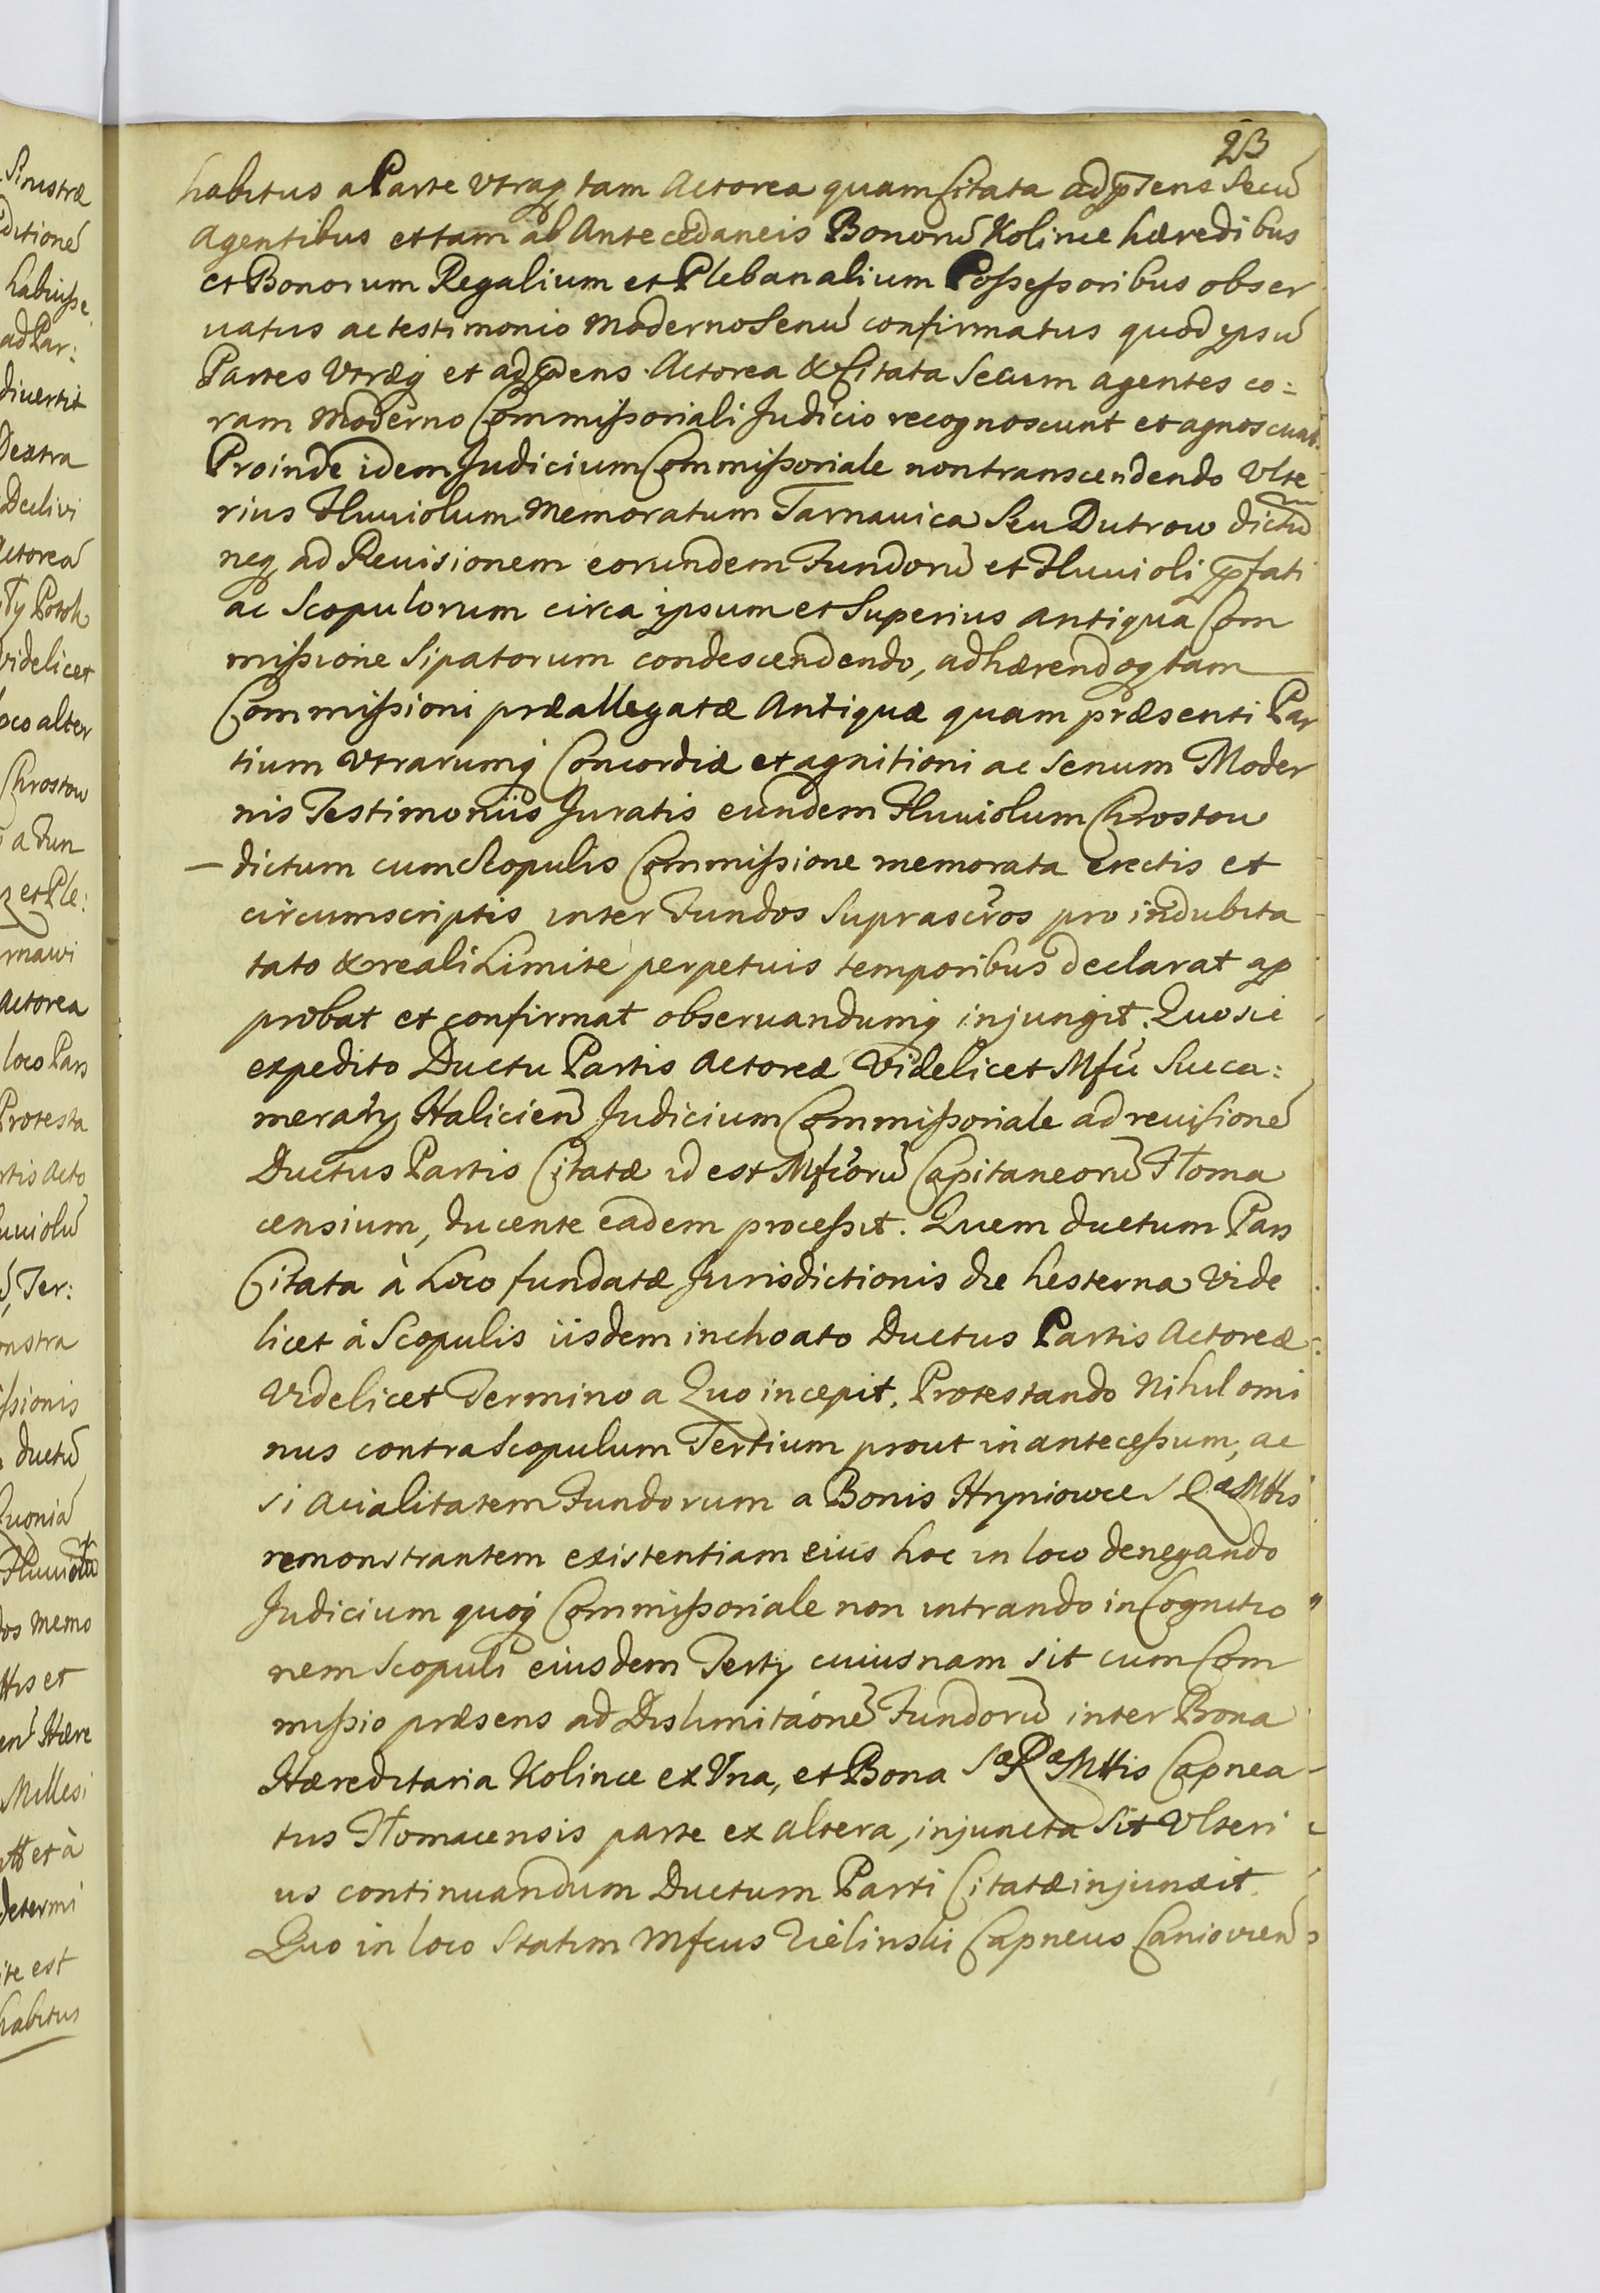 23
habitus a Parte vtraq tam Actorea quam Citata ad pñens Secũ
Agentibus et tam ab Antecedaneis Bonorũ Kolince hæredibus
et Bonorum Regalium et Plebanalium Possessoribus obser
uatus ac testimonio moderno Senũ confirmatus quod ipsũ
Partes Vtræq et ad pñens Actorea & Citata Secum agentes co:
ram Moderno Commissoriali Judicio recognoscunt et agnoscunt.
Proinde idem Judicium Commissoriale non transcendendo Vlte
rius Fluuiolum Memoratum Tarnauica Seu Dutrow dictũ
neq ad Reuisionem eorundem Fundorũ et Fluuioli pfati
ac Scopulorum circa ipsum et Superius antiqua Com
missione Sipatorum condescendendo, adhærendoq tam
Commissioni præallegatæ Antiquæ quam præsenti Par
tium vtrarumq Concordiæ et agnitioni ac Senum Moder
nis Testimoniis Juratis eundem Fluuiolum Chrostow
– dictum cum Scopulis Commissione memorata erectis et
circumscriptis inter Fundos Suprascros pro indubita
tato & reali Limite perpetuis temporibus declarat ap
probat et confirmat obseruandumq injungit. Quo sic
expedito Ductu Partis Actoreæ Videlicet Mfci Succa:
merarij Halicien Judicium Commissoriale ad reuisionẽ
Ductus Partis Citatæ id est Mfcorũ Capitaneorũ Tłoma
censium, ducente eadem processit. Quem ductum Pars
Citata à Loco fundatæ Jurisdictionis die hesterna Vide
licet à Scopulis iisdem inchoato Ductus Partis Actoreæ
Videlicet Termino a Quo incepit. Protestando Nihilomi
nus contra Scopulum Tertium prout in antecessum, ac
si Acialitatem Fundorum a Bonis Hryniowce S Ræ Mttis
remonstrantem existentiam eius hoc in loco denegando
Judicium quoq Commissoriale non intrando in Cognitio
nem Scopuli eiusdem Tertij cuiusnam sit cum Com
missio præsens ad Dislimitaonẽ Fundorũ inter Bona
Hæreditaria Kolince ex Vna, et Bona Sæ Ræ Mttis Capnea
tus Tłomacensis parte ex altera, injuncta Sit Vlteri
us continuandum Ductum Parti Citatæ injunxit.
Quo in loco Statim Mfcus Zielinski Capneus Caniovien